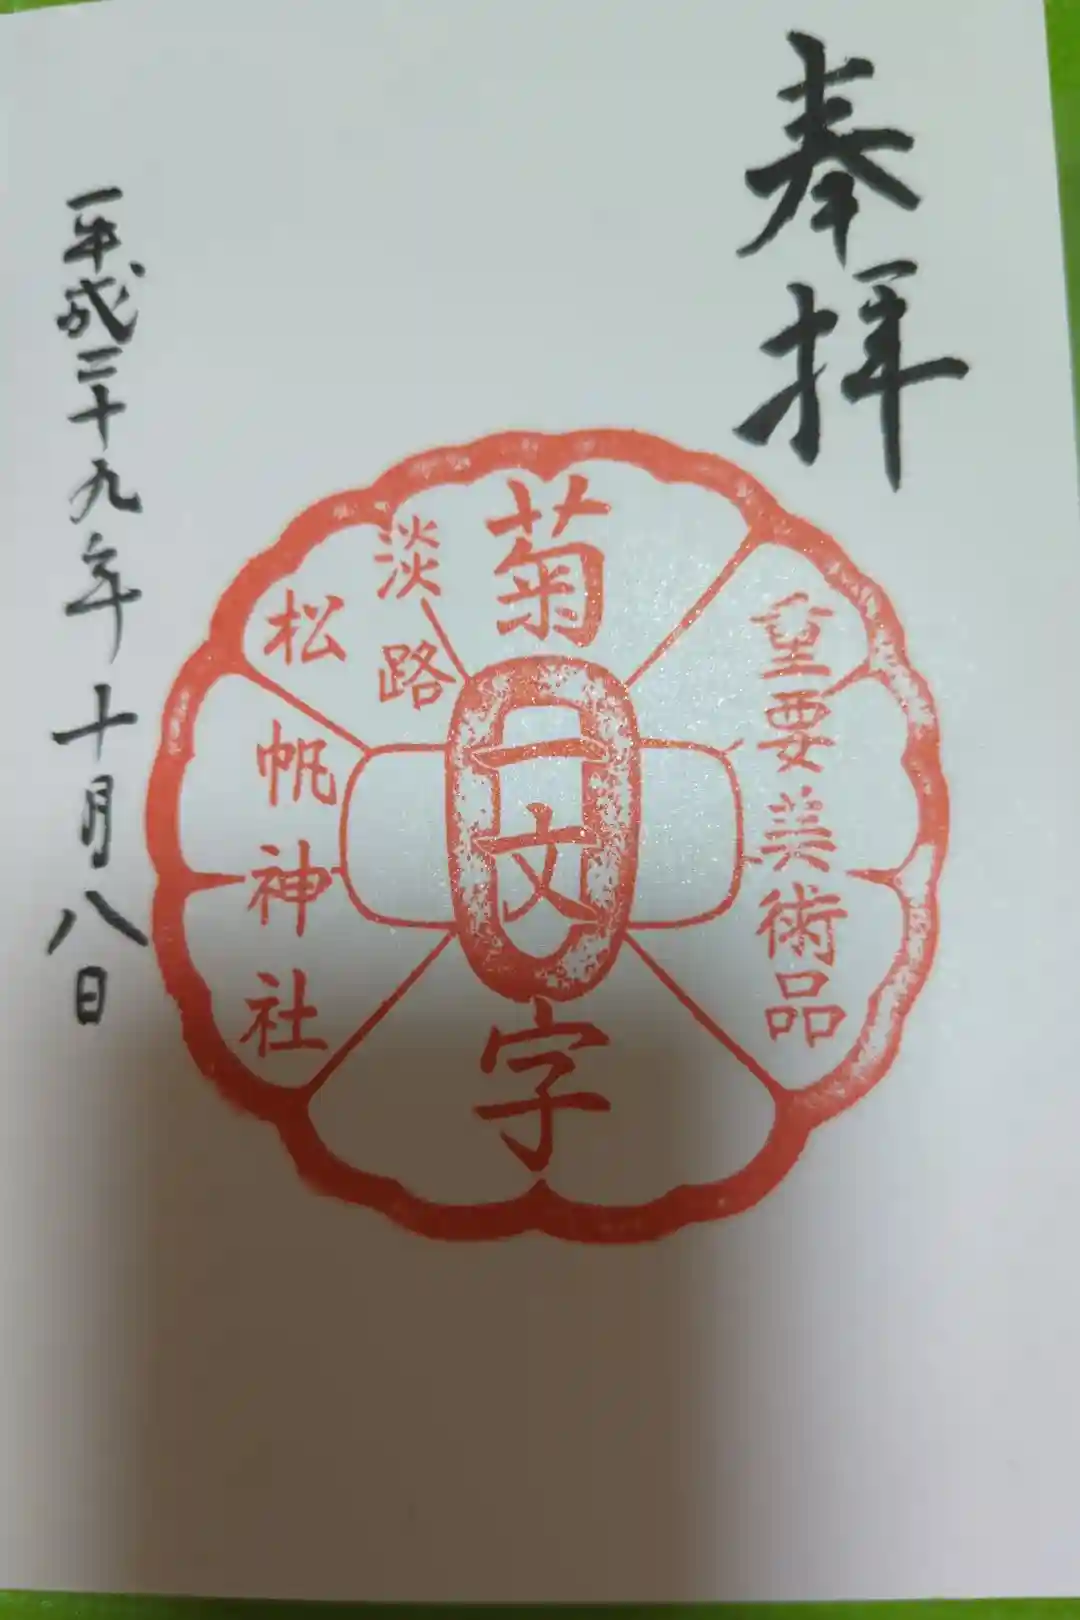 奉拝
重要美術品
菊一文字
淡路
松帆神社
平成二十九年十月八日